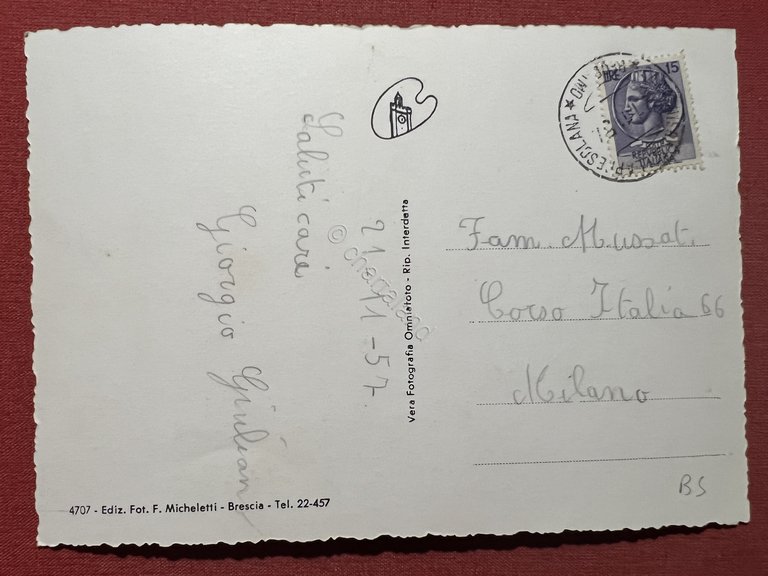 21-1-57.
Saluti cari
Giorgio Giulian
Vera Fotografia Omniafoto - Rip. Interdetta
4707 - Ediz. Fot. F. Micheletti - Brescia - Tel. 22-457
LIRE 15
REPUBBLICA
ITALIANA
Fam. Mussat.
Corso Italia 66
Milano
BS